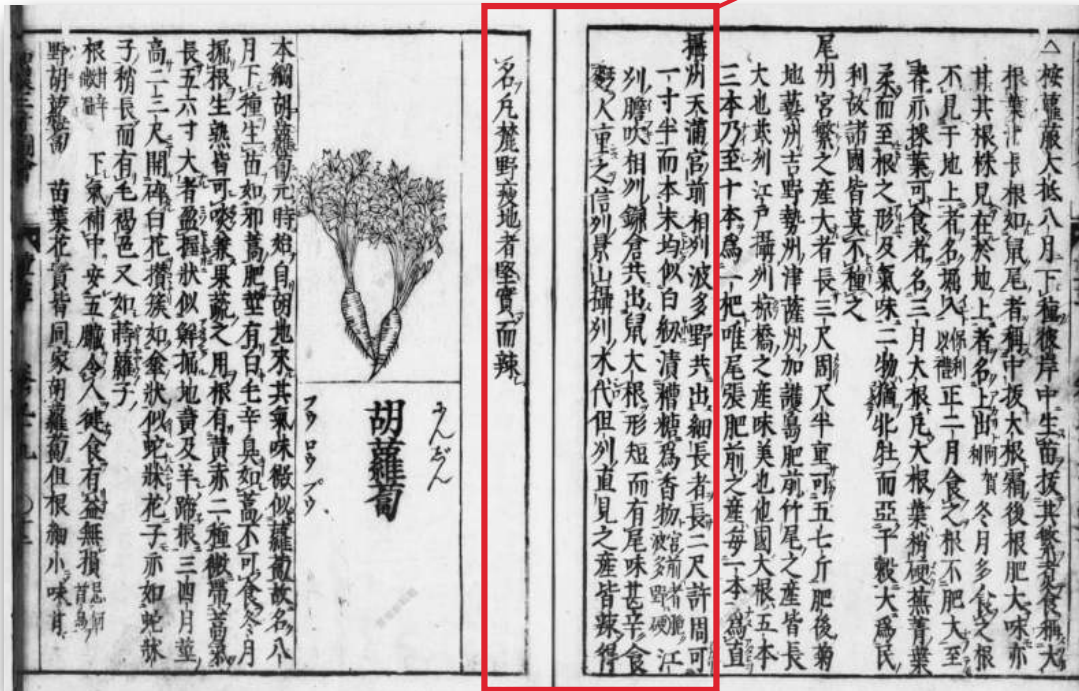 △按蘿蔔大抵八月下種彼岸中生苗抜其繁者食稱大
根葉汁卡根如鼠尾者稱中抜大根霜後根肥大味亦
甘其根株見在於地上者名上出阿賀利冬月多食之根
不見于地上者名堀入保利以禮正二月食之根不肥大至
春亦採葉可食者名三月大根凡大根葉稍硬蕪菁葉
柔而至根之形及氣味二物猶牝牡而亞于穀大爲民
利故諸國皆莫不種之
尾州宮繁之産大者長三尺周尺半重可五七斤肥後菊
地藝州吉野勢州津薩州加護島肥前竹尾之産皆長
大也武列江戸攝州椋橋之産味美也他國大根五本
三本乃至十本爲一把唯尾張肥前之産毎一本爲直
攝州天滿宮前相列波多野共出細長者長二尺許周可
一寸半而本末均似白 漬糟糖爲香物宮前者脆波多野硬江
列膽吹相列鎌倉共出鼠大根形短而有尾味甚辛食
麪人重之信列景山攝列木代但列直見之産皆辣得
名凡麓野疲地者堅實而辣
胡蘿蔔
フウ ロウ プウ
本綱胡蘿蔔元時始自胡地來其氣味微似蘿蔔故名八
月下種生苗如邪蒿肥莖有白毛辛臭如蒿不可食冬月
掘根生熟皆可啖兼果蔬之用根有黃赤二種微帶蒿氣
長五六寸大者盈握狀似鮮掘地黃及羊蹄根三四月莖
高二三尺開碎白花攢簇如傘狀似蛇牀花子亦如蛇牀
子稍長而有毛褐色又如蒔蘿子
根甘辛微温 下氣補中安五臟令人健食有益無損
野胡蘿蔔 苗葉花實皆同家胡蘿蔔但根細小味甘